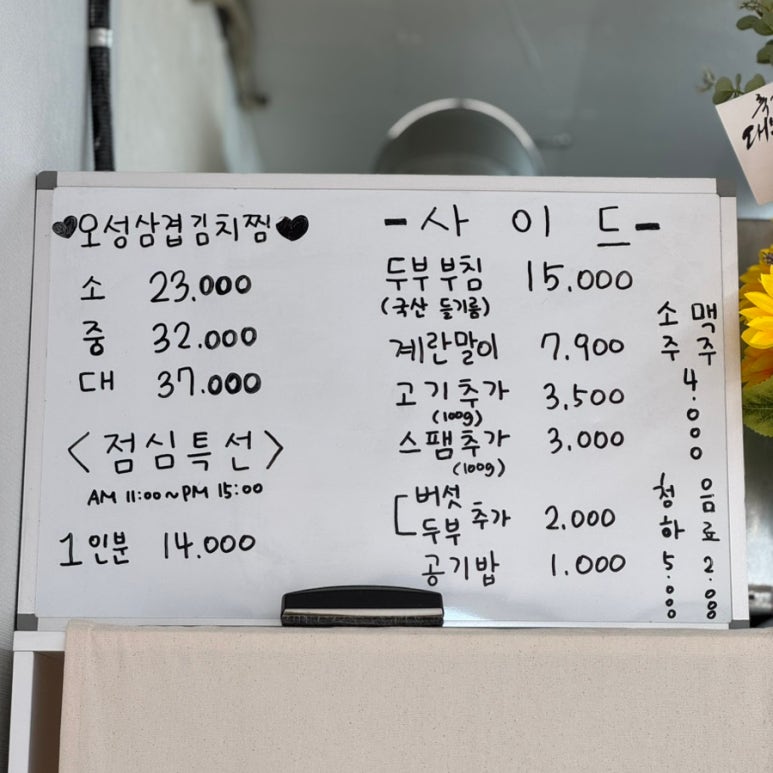 ♥오성삼겹김치찜♥
소 23.000
중 32.000
대 37.000
<점심특선>
AM 11:00~PM 15:00
1인분 14.000
-사이드-
두부부침 15.000
(국산 들기름)
계란말이 7.900
고기추가 3,500
(100g)
스팸추가 3.000
(100g)
버섯
두부 추가 2.000
공기밥 1.000
소주 맥주
4.000
청하 5.000
음료 2.000